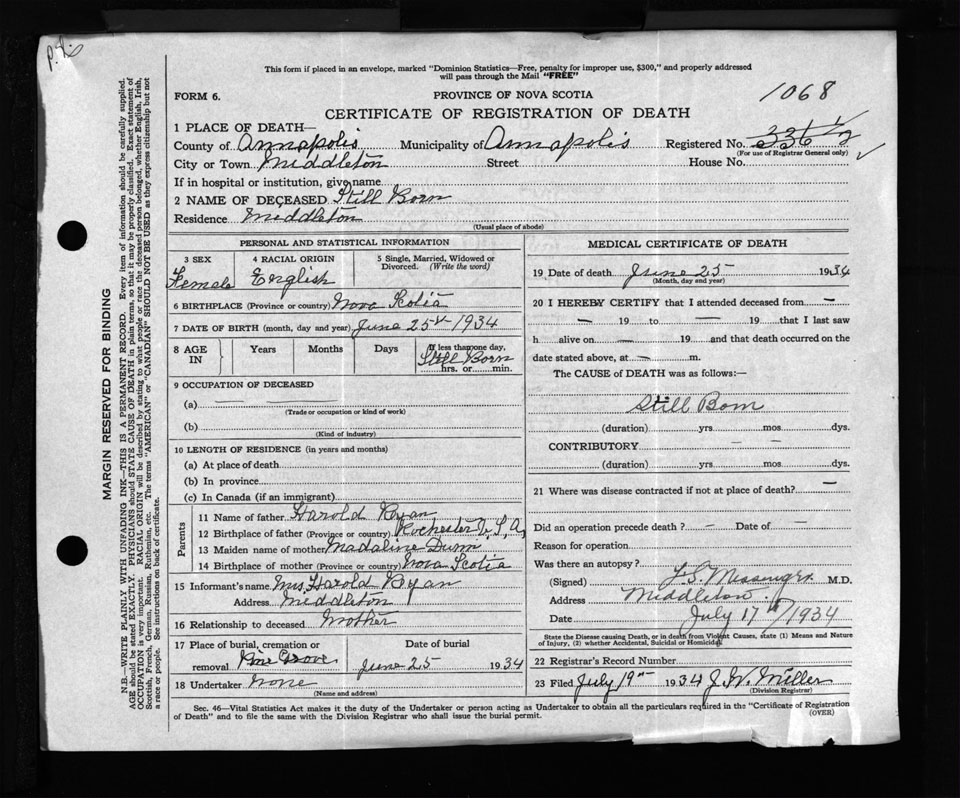 P.L.
This form if placed in an envelope, marked "Dominion Statistics—Free, penalty for improper use, $300," and properly addressed
will pass through the Mail "FREE"
FORM 6.
PROVINCE OF NOVA SCOTIA
1068
CERTIFICATE OF REGISTRATION OF DEATH
1 PLACE OF DEATH—
County of Annapolis Municipality of Annapolis Registered No. 336 1/2
(For use of Registrar General only)
City or Town Middleton Street House No.
If in hospital or institution, give name
2 NAME OF DECEASED Still Born
Residence Middleton
(Usual place of abode)
PERSONAL AND STATISTICAL INFORMATION
3 SEX 4 RACIAL ORIGIN 5 Single, Married, Widowed or
Divorced. (Write the word)
Female English
6 BIRTHPLACE (Province or country) Nova Scotia
7 DATE OF BIRTH (month, day and year) June 25 1934
8 AGE IN Years Months Days If less than one day,
Still Born
hrs. or min.
9 OCCUPATION OF DECEASED
(a) — —
(Trade or occupation or kind of work)
(b)
(Kind of industry)
10 LENGTH OF RESIDENCE (in years and months)
(a) At place of death
(b) In province
(c) In Canada (if an immigrant)
Parents
11 Name of father Harold Ryan
12 Birthplace of father (Province or country) Rochester U.S.A.
13 Maiden name of mother Madaline Dunn
14 Birthplace of mother (Province or country) Nova Scotia
15 Informant's name Mrs. Harold Ryan
Address Middleton
16 Relationship to deceased Mother
17 Place of burial, cremation or removal Pine Grove Date of burial June 25 1934
18 Undertaker None
(Name and address)
MEDICAL CERTIFICATE OF DEATH
19 Date of death June 25 1934
(Month, day and year)
20 I HEREBY CERTIFY that I attended deceased from —
— 19 to — 19 that I last saw
h alive on — 19 and that death occurred on the
date stated above, at — m.
The CAUSE of DEATH was as follows:—
Still Born
(duration) yrs. mos. dys.
CONTRIBUTORY — —
(duration) yrs. mos. dys.
21 Where was disease contracted if not at place of death? —
Did an operation precede death? — Date of —
Reason for operation
Was there an autopsy?
(Signed) J.S. Messenger M.D.
Address Middleton.
Date July 17th/1934
State the Disease causing Death, or in death from Violent Causes, state (1) Means and Nature
of Injury, (2) whether Accidental, Suicidal or Homicidal.
22 Registrar's Record Number
23 Filed July 19th 1934 J.W. Miller
(Division Registrar)
Sec. 46—Vital Statistics Act makes it the duty of the Undertaker or person acting as Undertaker to obtain all the particulars required in the "Certificate of Registration
of Death" and to file the same with the Division Registrar who shall issue the burial permit.
(OVER)
MARGIN RESERVED FOR BINDING
N.B.—WRITE PLAINLY WITH UNFADING INK—THIS IS A PERMANENT RECORD. Every item of information should be carefully supplied.
AGE should be stated EXACTLY. PHYSICIANS should STATE CAUSE OF DEATH in plain terms, so that it may be properly classified. Exact statement of
OCCUPATION is very important. RACIAL ORIGIN will be described by stating to what people or race the deceased person belonged, whether English, Irish,
Scottish, French, German, Russian, Ruthenian, etc. The terms "AMERICAN" or "CANADIAN" SHOULD NOT BE USED as they express citizenship but not
a race or people. See instructions on back of certificate.